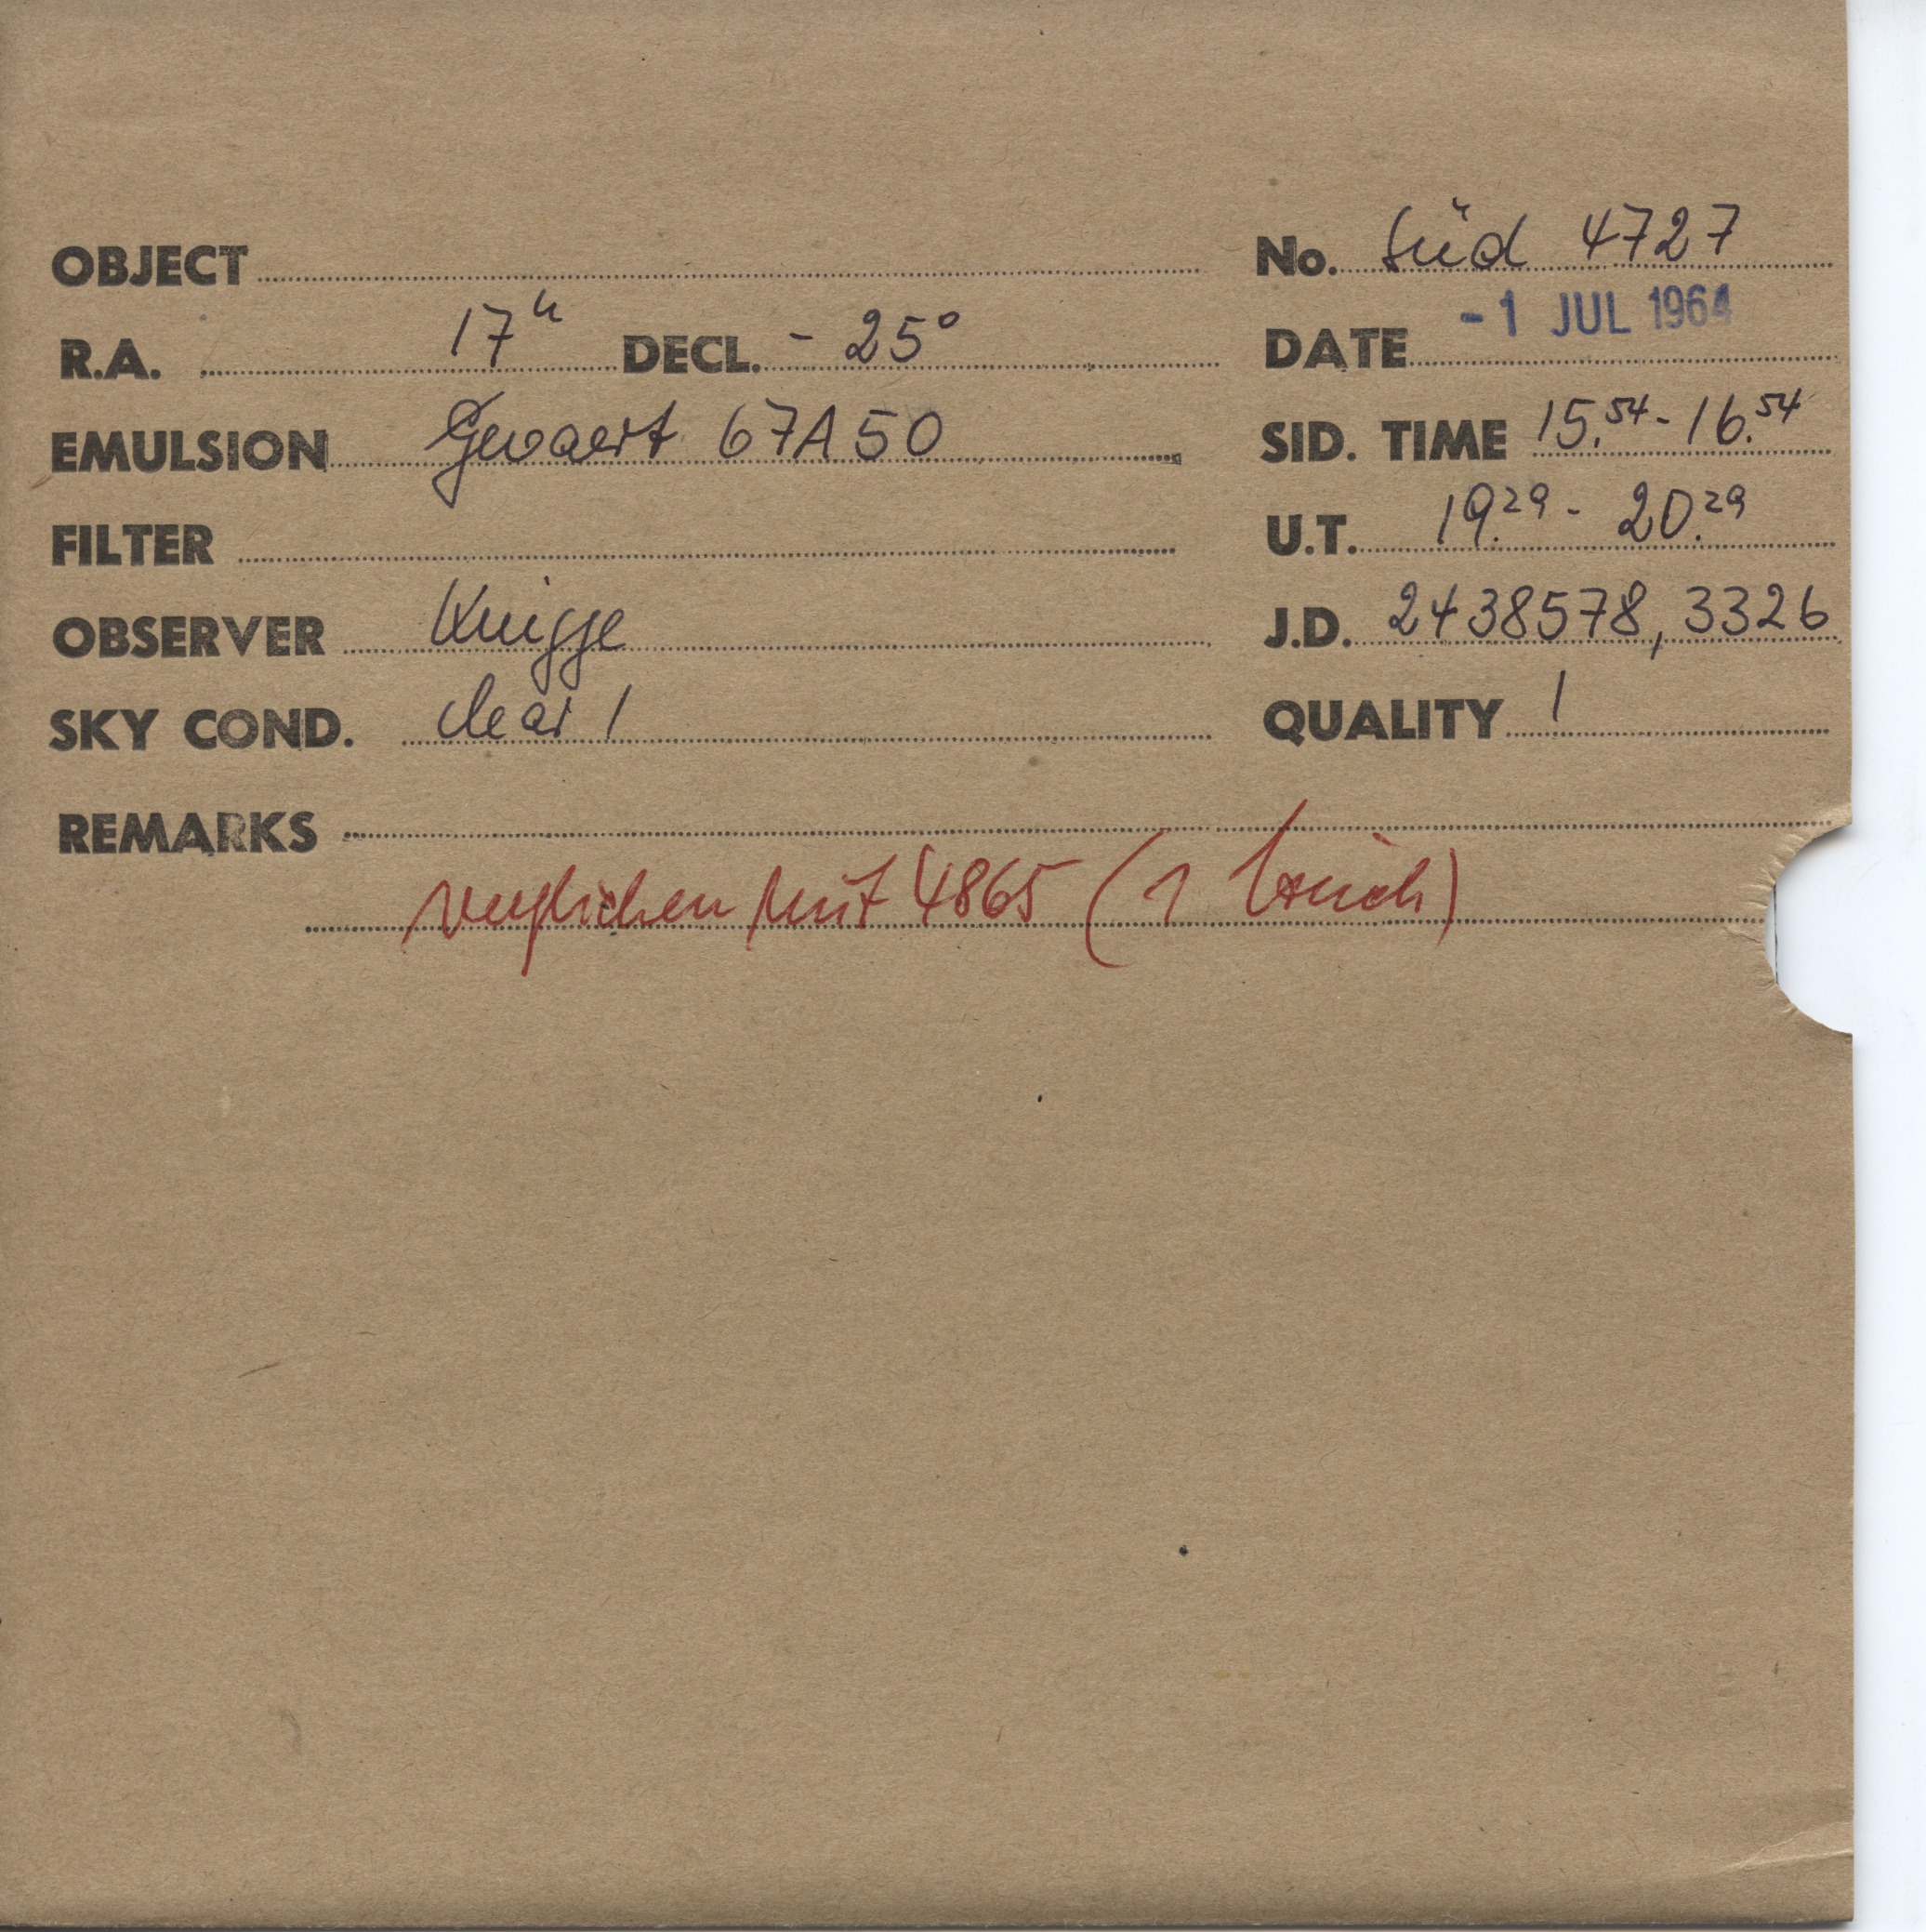 OBJECT No. Süd 4727
R.A. 17h DECL. - 25°
DATE -1 JUL 1964
EMULSION Gevaert 67A50
SID. TIME 15.54 - 16.54
FILTER
U.T. 19.29 - 20.29
OBSERVER Knigge
J.D. 2438578,3326
SKY COND. clear 1
QUALITY 1
REMARKS
verglichen mit 4865 (1